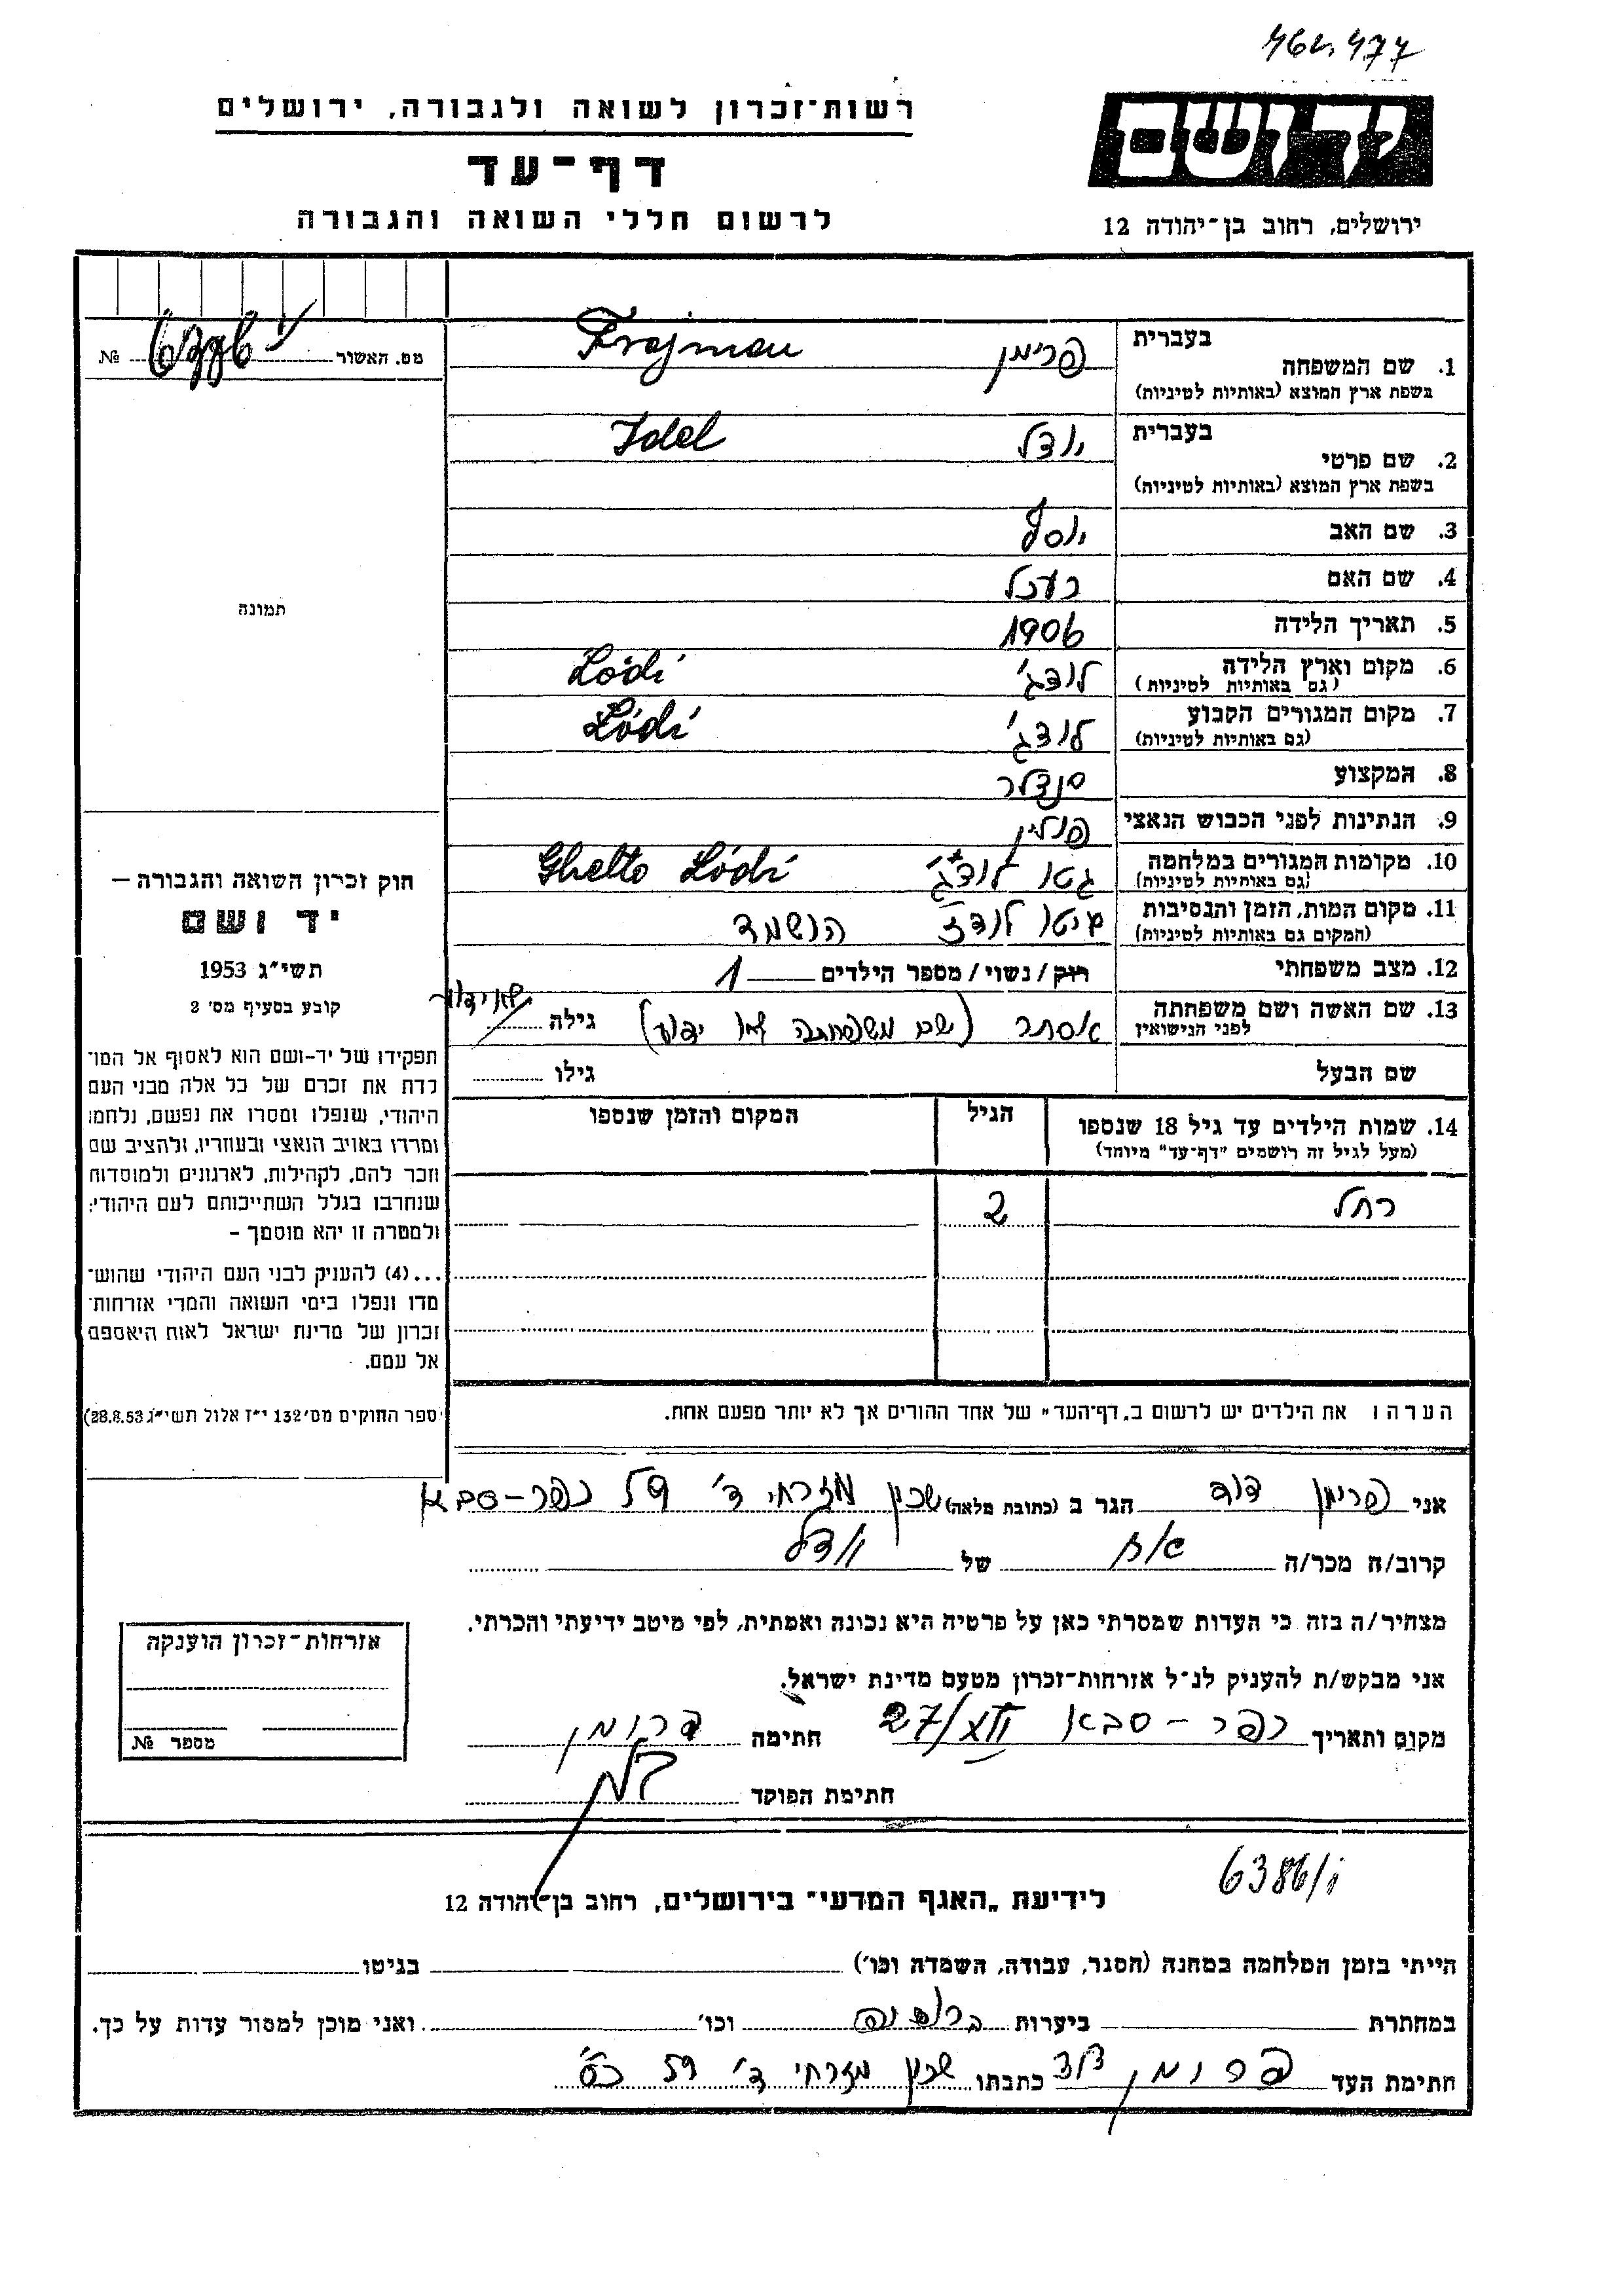 רשות־זכרון לשואה ולגבורה, ירושלים
דף־עד
לרשום חללי השואה והגבורה
ידושם
ירושלים, רחוב בן־יהודה 12
מס. האשור №
בעברית
1. שם המשפחה פרימן Frajman
בשפת ארץ המוצא (באותיות לטיניות)
בעברית
2. שם פרטי יודל Idel
בשפת ארץ המוצא (באותיות לטיניות)
3. שם האב יוסף
4. שם האם
5. תאריך הלידה 1906
6. מקום וארץ הלידה לודג' Lódź
(גם באותיות לטיניות)
7. מקום המגורים הקבוע לודג' Lódź
(גם באותיות לטיניות)
8. המקצוע סנדלר
9. הנתינות לפני הכבוש הנאצי פולין
10. מקומות המגורים במלחמה גטו לודג' Ghetto Lódź
(גם באותיות לטיניות)
11. מקום המות, הזמן והנסיבות גיטו לודז הושמד
(המקום גם באותיות לטיניות)
12. מצב משפחתי רוק / נשוי / מספר הילדים 1
13. שם האשה ושם משפחתה אסתר (שם משפחתה לא ידוע) גילה לא ידוע
לפני הנישואין
שם הבעל גילו
14. שמות הילדים עד גיל 18 שנספו הגיל המקום והזמן שנספו
(מעל לגיל זה רושמים "דף־עד" מיוחד)
רחל 2
הערה: את הילדים יש לרשום ב„דף־העד" של אחד ההורים אך לא יותר מפעם אחת.
תמונה
חוק זכרון השואה והגבורה —
יד ושם
תשי"ג 1953
קובע בסעיף מס' 2
תפקידו של יד-ושם הוא לאסוף אל המו־
לדת את זכרם של כל אלה מבני העם
היהודי, שנפלו ומסרו את נפשם, נלחמו
ומרדו באויב הנאצי ובעוזריו, ולהציב שם
וזכר להם, לקהילות, לארגונים ולמוסדות
שנחרבו בגלל השתייכותם לעם היהודי;
ולמטרה זו יהא מוסמך –
...(4) להעניק לבני העם היהודי שהוש־
מדו ונפלו בימי השואה והמרי אזרחות־
זכרון של מדינת ישראל לאות היאספם
אל עמם.
(ספר החוקים מס' 132 י"ז אלול תשי"ג 28.8.53)
אני פרימן דוד הגר ב (כתובת מלאה) שכון מזרחי ד' 59 כפר-סבא
קרוב/ה מכר/ה אח של יודל
מצהיר/ה בזה כי העדות שמסרתי כאן על פרטיה היא נכונה ואמתית, לפי מיטב ידיעתי והכרתי.
אני מבקש/ת להעניק לנ"ל אזרחות־זכרון מטעם מדינת ישראל.
מקום ותאריך כפר-סבא 27/XII חתימה פרומן
חתימת הפוקד
אזרחות־זכרון הוענקה
מספר №
6386/i
לידיעת „האגף המדעי" בירושלים, רחוב בן־יהודה 12
הייתי בזמן המלחמה במחנה (הסגר, עבודה, השמדה וכו') בגיטו
במחתרת ביערות ברוסיה וכו' ואני מוכן למסור עדות על כך.
חתימת העד פרומן דוד כתבתו שכון מזרחי ד' 59 כ"ס